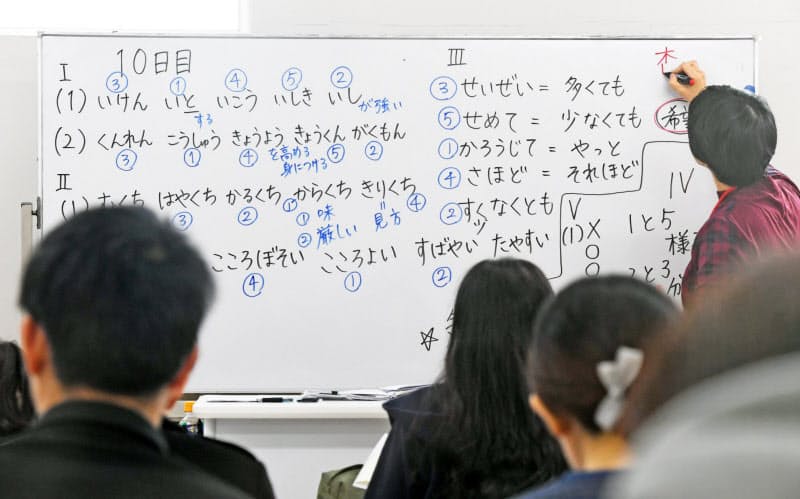 I 10日目
③ ① ④ ⑤ ②
(1) いけん いと いこう いしき いし が強い
する
(2) くんれん こうしゅう きょうよう きょうくん がくもん
③ ① ④を高める ⑤ ②
身につける
II
(1) むくち はやくち かるくち からくち きりくち
③ ② ① ④
①味 見方
②厳しい
こころぼそい こころよい すばやい たやすい
④ ① ②
III
③ せいぜい = 多くても
⑤ せめて = 少なくても 希望
① かろうじて = やっと
④ さほど = それほど
② すくなくとも
少
IV
1と5
様
2と3
分
V
(1) X
O
O
☆